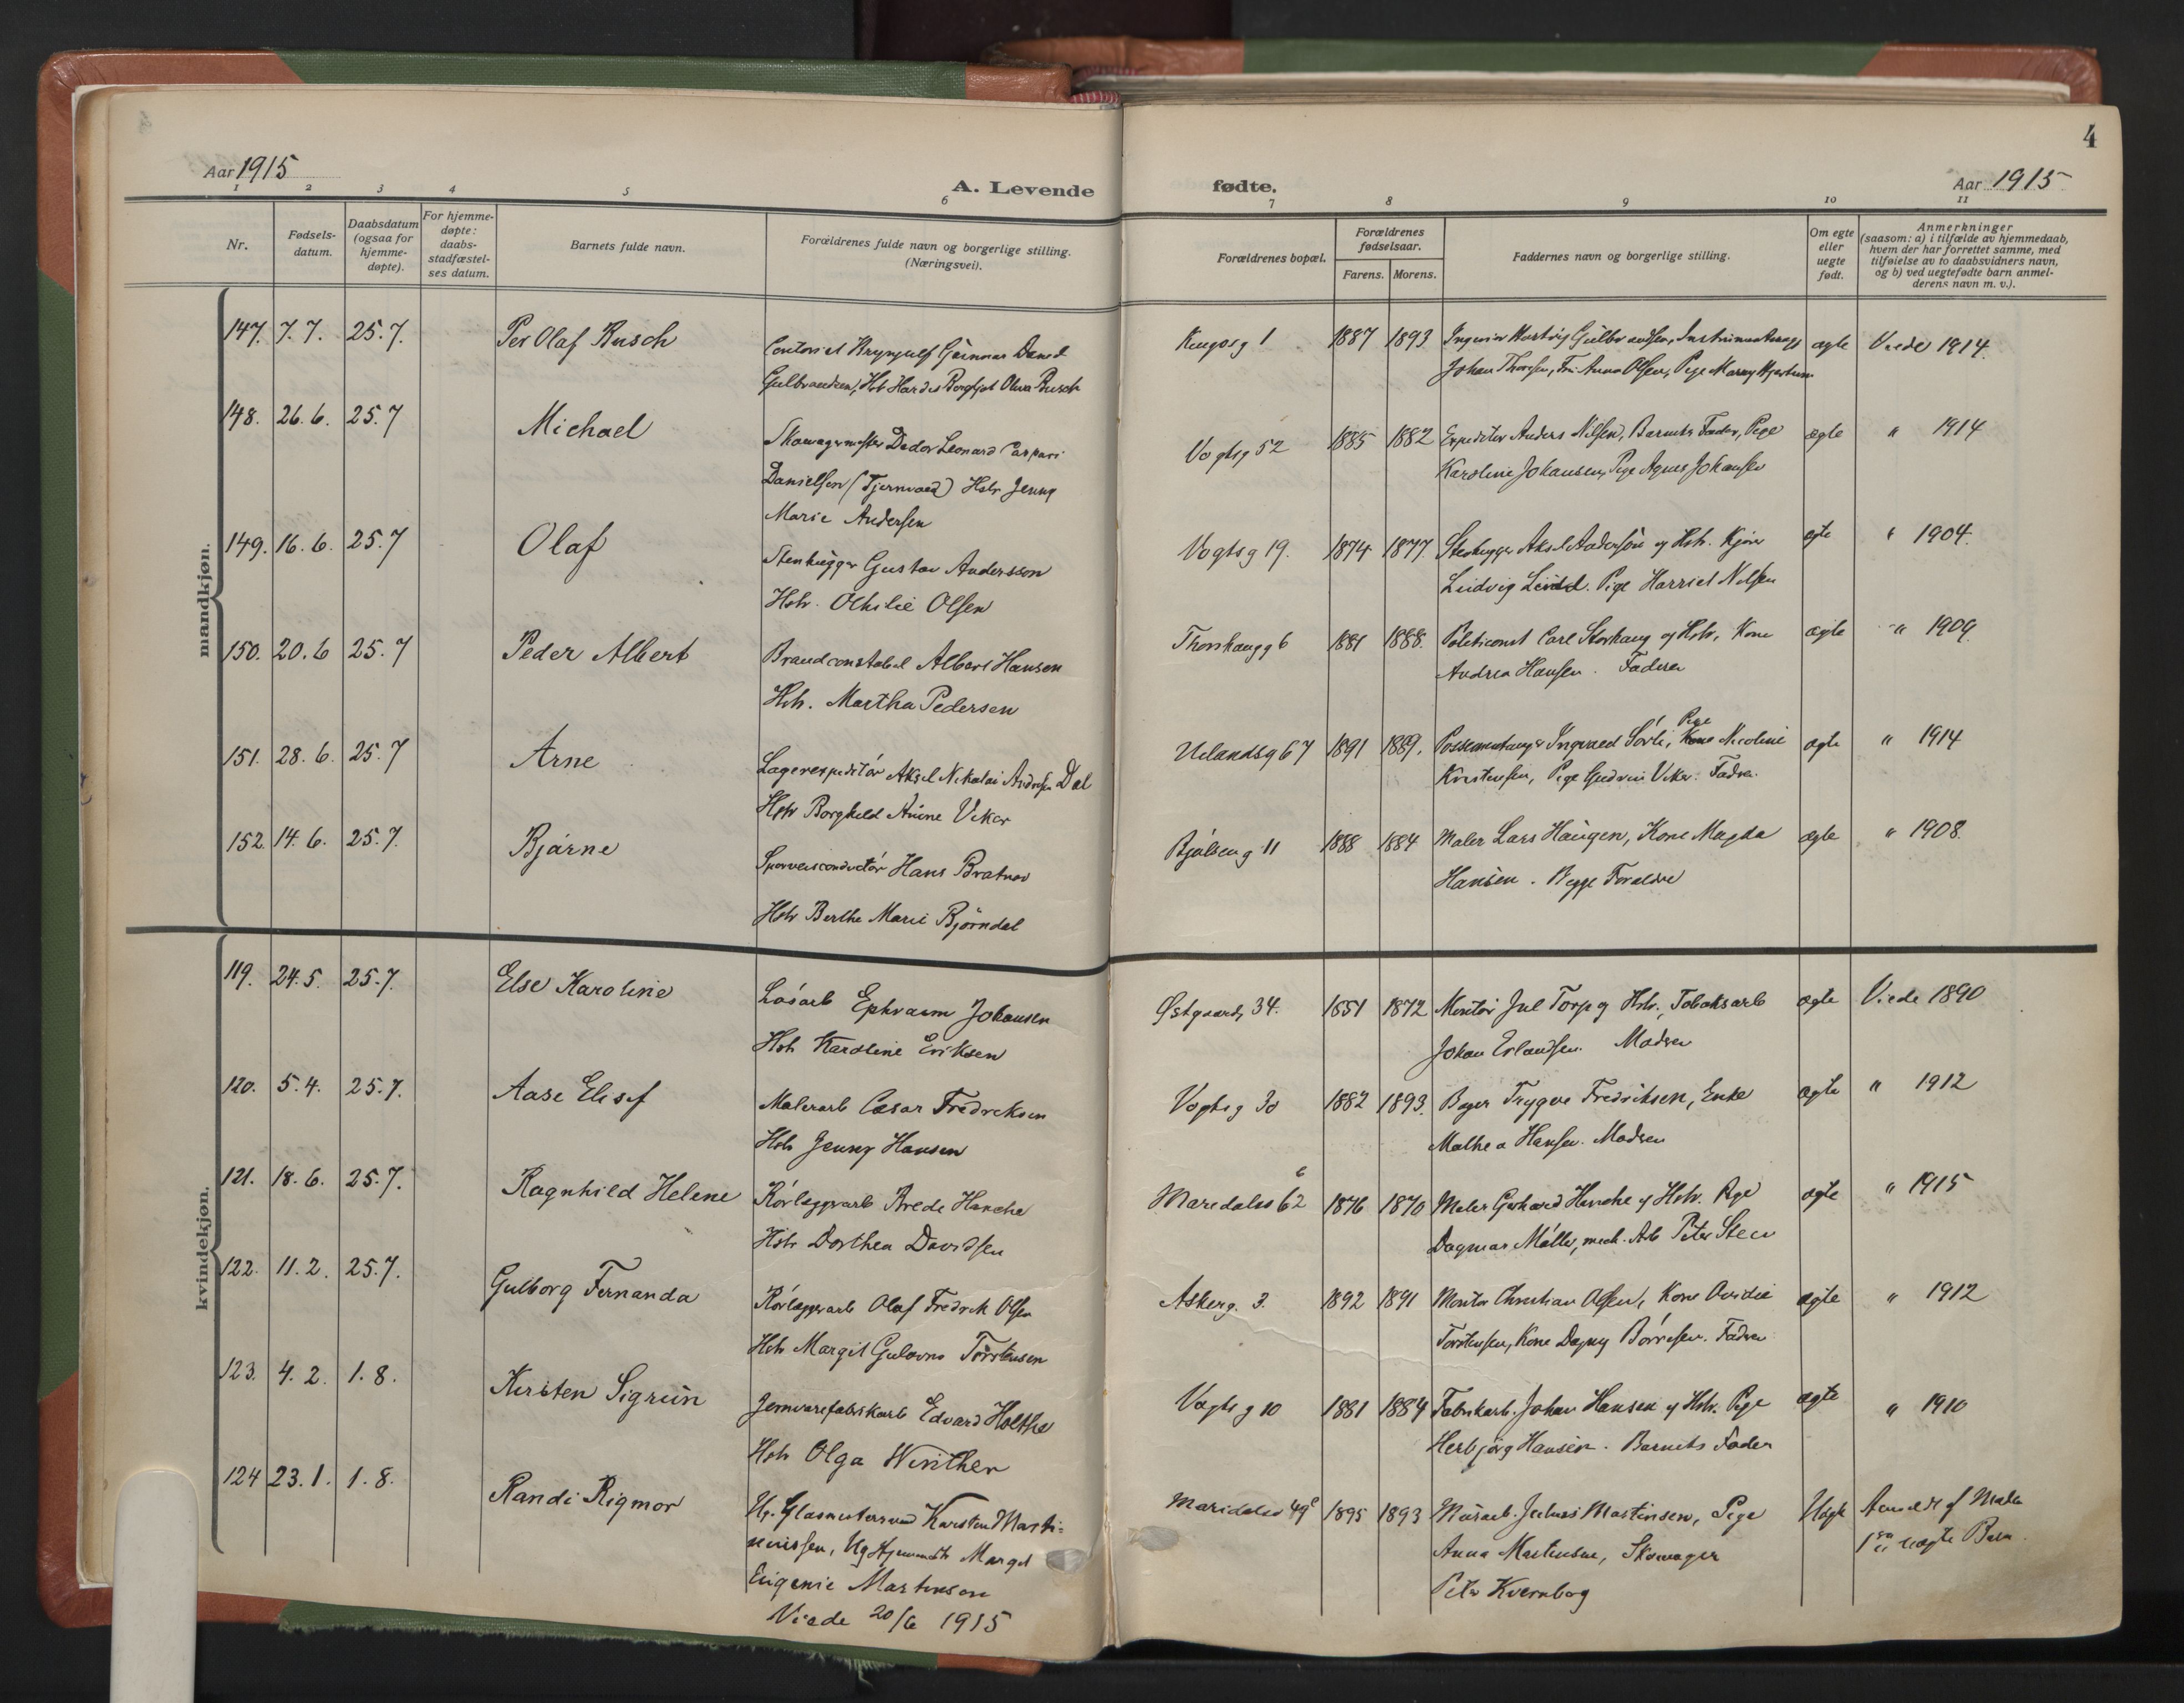 4
Aar 1915
A. Levende fødte.
Aar 1915
1 2 3 4 5 6 7 8 9 10 11
Nr.
Fødsels-
datum.
Daabsdatum
(ogsaa for
hjemme-
døpte).
For hjemme-
døpte:
daabs-
stadfæstel-
ses datum.
Barnets fulde navn.
Forældrenes fulde navn og borgerlige stilling.
(Næringsvei).
Forældrenes bopæl.
Forældrenes
fødselsaar.
Farens. Morens.
Faddernes navn og borgerlige stilling.
Om egte
eller
uegte
født.
Anmerkninger
(saasom: a) i tilfælde av hjemmedaab,
hvem der har forrettet samme, med
tilføielse av to daabsvidners navn,
og b) ved uegtefødte barn anmel-
derens navn m. v.).
mandkjøn.
147. 7.7. 25.7. Per Olaf Rusch
Contorist Brynjulf Gunnar
Gulbrandsen, Hstr Olava Rusch
1 1887 1893 Hartvig Gulbrandsen,
Johan Thoresen, Frk Anna Olsen, Pige
ægte Viede 1914.
148. 26.6. 25.7 Michael
Leonard
Danielsen (Fjernvaad) Hstr Jenny
Marie Andersen
Vogtsg 52 1885 1882 Expeditør Anders Nilsen, Barnets Fader, Pige
Karoline Johansen, Pige Agnes Johansen
ægte " 1914
149. 16.6. 25.7 Olaf
Stenhugger Gustav Andersson
Hstr. Othilie Olsen
Vogtsg 19. 1874 1877. Stenhugger Aksel Andersson og Hstr.
Ludvig Pige Harriet Nilsen
egte " 1904.
150. 20.6 25.7 Peder Albert
Brandconstabel Albert Hansen
Hstr. Martha Pedersen
Thorshaugg 6 1881 1888. Politiconst Carl Storhaug og Hstr, Kone
Andrea Hansen. Faderen
ægte " 1909.
151. 28.6. 25.7 Arne
Lagerexpeditør Aksel Nikolai Andresen Dal
Hstr Borghild Anine Veker
Uelandsg 67 1891 1889. Ingvald Sørli, Pige Nicoline
Kristensen, Pige Gudrun Veker. Fadren.
ægte " 1914
152. 14.6. 25.7. Bjarne
Sporveisconductør Hans Bratner
Hstr Berthe Marie Bjørndal
Bjølseng 11 1888 1884 Maler Lars Haugen, Kone Magda
Hansen. Begge Forældre
ægte " 1908.
kvindekjøn.
119. 24.5. 25.7. Else Karoline
Løsarb Ephraim Johansen
Hstr Karoline Eriksen
Østgaardsg 34. 1851 1872 Montør Jul Torp og Hstr., Tobaksarb
Johan Erlandsen. Modren
ægte Viede 1890
120. 5.4. 25.7. Aase Elisef
Malerarb Cæsar Fredreksen
Hstr Jenny Hansen
Vogtsg 30 1882 1893. Bager Trygve Fredriksen, Enke
Mathea Hansen. Modren
ægte " 1912
121. 18.6. 25.7. Ragnhild Helene
Rørlæggerarb Brede Hanche
Hstr Dorthea Davidsen
6
Maredalsv 62 1876 1870 Maler Gerhard Hanche og Hstr. Pige
Dagmar Møller, mech. Arb Peter Steen
ægte " 1915
122. 11.2. 25.7. Gulborg Fernanda
Rørlæggerarb Olaf Fredrik Olsen
Hstr Margit Gulovna Torstensen
Askerg. 3. 1892 1891 Montør Christian Olsen, Kone Ovidie
Torstensen, Kone Dagny Børresen. Fadren
ægte " 1912
123. 4.2. 1.8. Kirsten Sigrun
Jernvarefabrikarb Edvard Holthe
Hstr Olga Winther
Vogtsg 10 1881 1884 Fabrikarb. Johan Hansen og Hstr. Pige
Herbjørg Hansen. Barnets Fader
ægte " 1910
124 23.1. 1.8. Randi Rigmor
Ug. Karsten Marti-
niussen, Ug Margit
Eugenie Martinsen
Viede 20/6 1915
Maridalsv 49 1895 1893 Murarb. Julius Martinsen, Pige
Anna Martinsen, Skomager
Peter Kvernborg
Uægte Anmeldt af
1 uægte Barn.